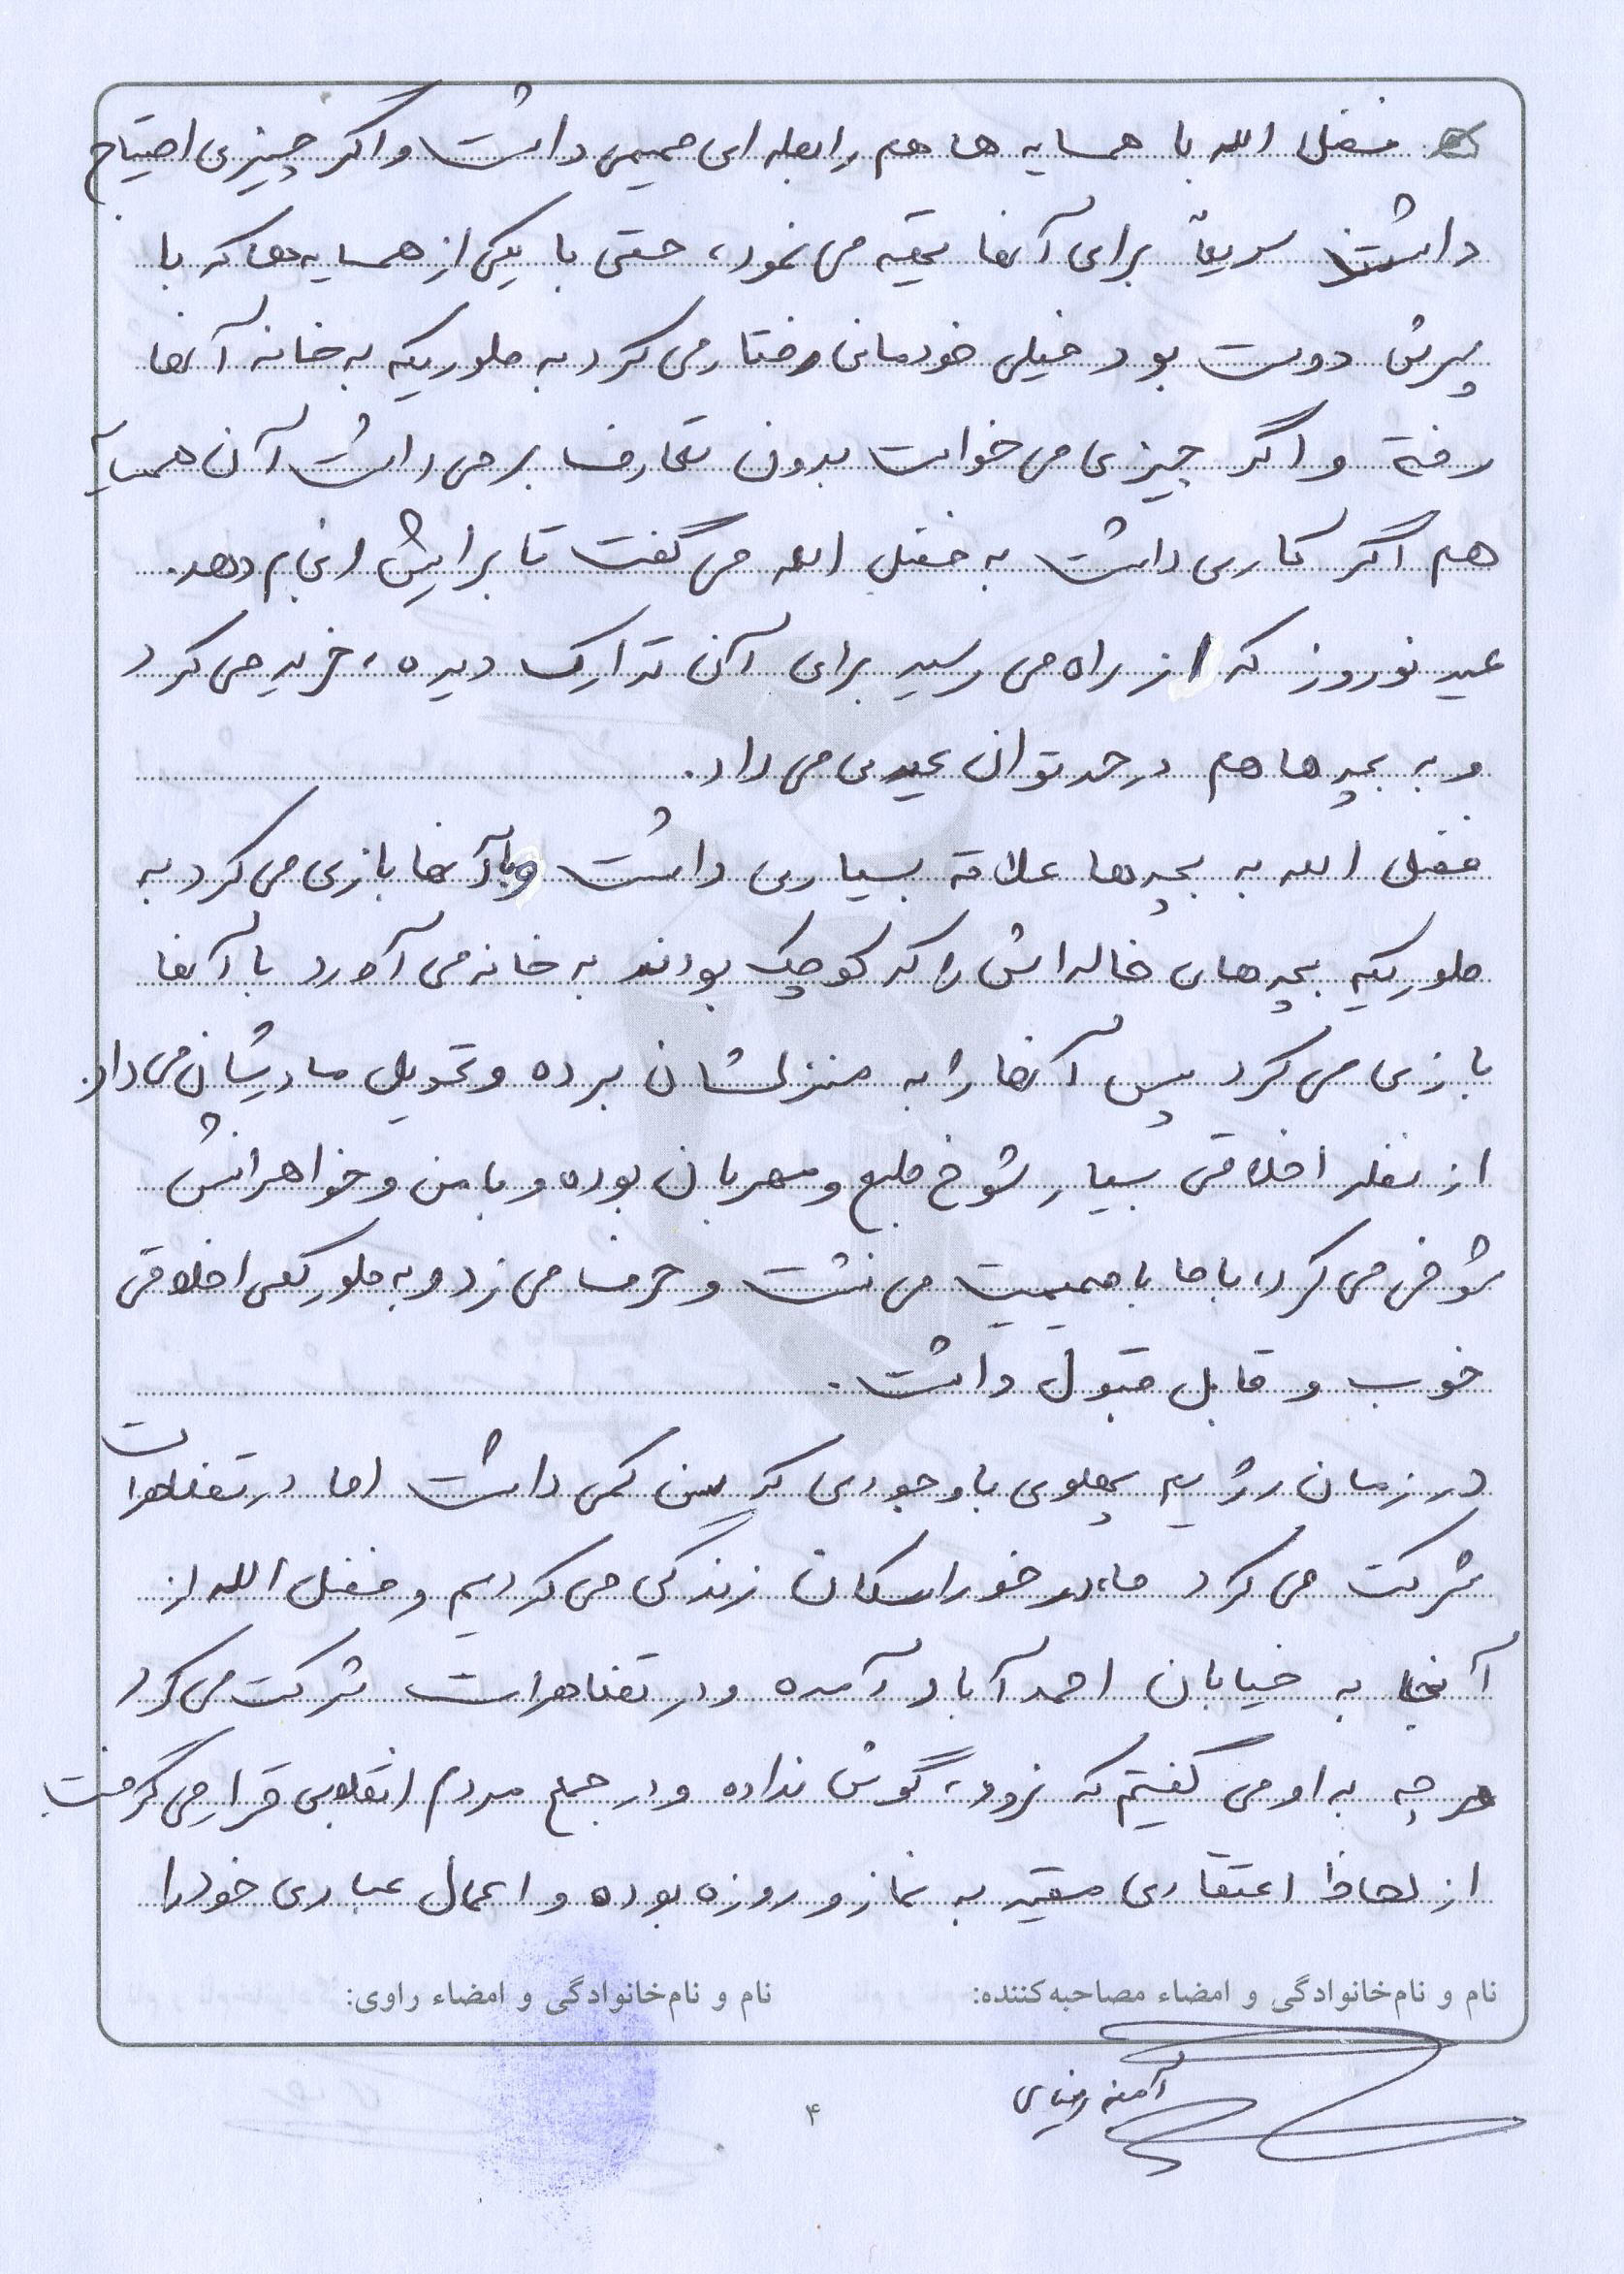 فضل الله با همسایه ها هم رابطه ای صمیمی داشت و اگر چیزی احتیاج
داشتند سریعاً برای آنها تهیه می نمود، حتی با یکی از همسایه ها که با
پسرش دوست بود خیلی خودمانی رفتار می کرد به طوریکه به خانه آنها
رفته و اگر چیزی می خواست بدون تعارف بر می داشت آن همسایه
هم اگر کاری داشت به فضل الله می گفت تا برایش انجام دهد.
عید نوروز که از راه می رسید برای آن تدارک دیده، خرید می کرد
و به بچه ها هم در حد توان عیدی می داد.
فضل الله به بچه ها علاقه بسیاری داشت و با آنها بازی می کرد به
طوریکه بچه های خاله اش را که کوچک بودند به خانه می آورد با آنها
بازی می کرد پس آنها را به منزلشان برده و تحویل مادرشان می داد.
از نظر اخلاقی بسیار شوخ طبع و مهربان بوده و با من و خواهرانش
شوخی می کرد، با ما با صمیمیت می نشست و حرف می زد و به طور کلی اخلاقی
خوب و قابل قبول داشت.
در زمان رژیم پهلوی با وجودی که سن کمی داشت اما در تظاهرات
شرکت می کرد ما در خوراسکان زندگی می کردیم و فضل الله از
آنجا به خیابان احمدآباد آمده و در تظاهرات شرکت می کرد
هر چه به او می گفتیم که نرود، گوش نداده و در جمع مردم انقلابی قرار می گرفت
از لحاظ اعتقادی مقید به نماز و روزه بوده و اعمال عبادی خود را
نام و نام‌خانوادگی و امضاء مصاحبه‌کننده:
نام و نام‌خانوادگی و امضاء راوی:
آمنه رضایی
۴